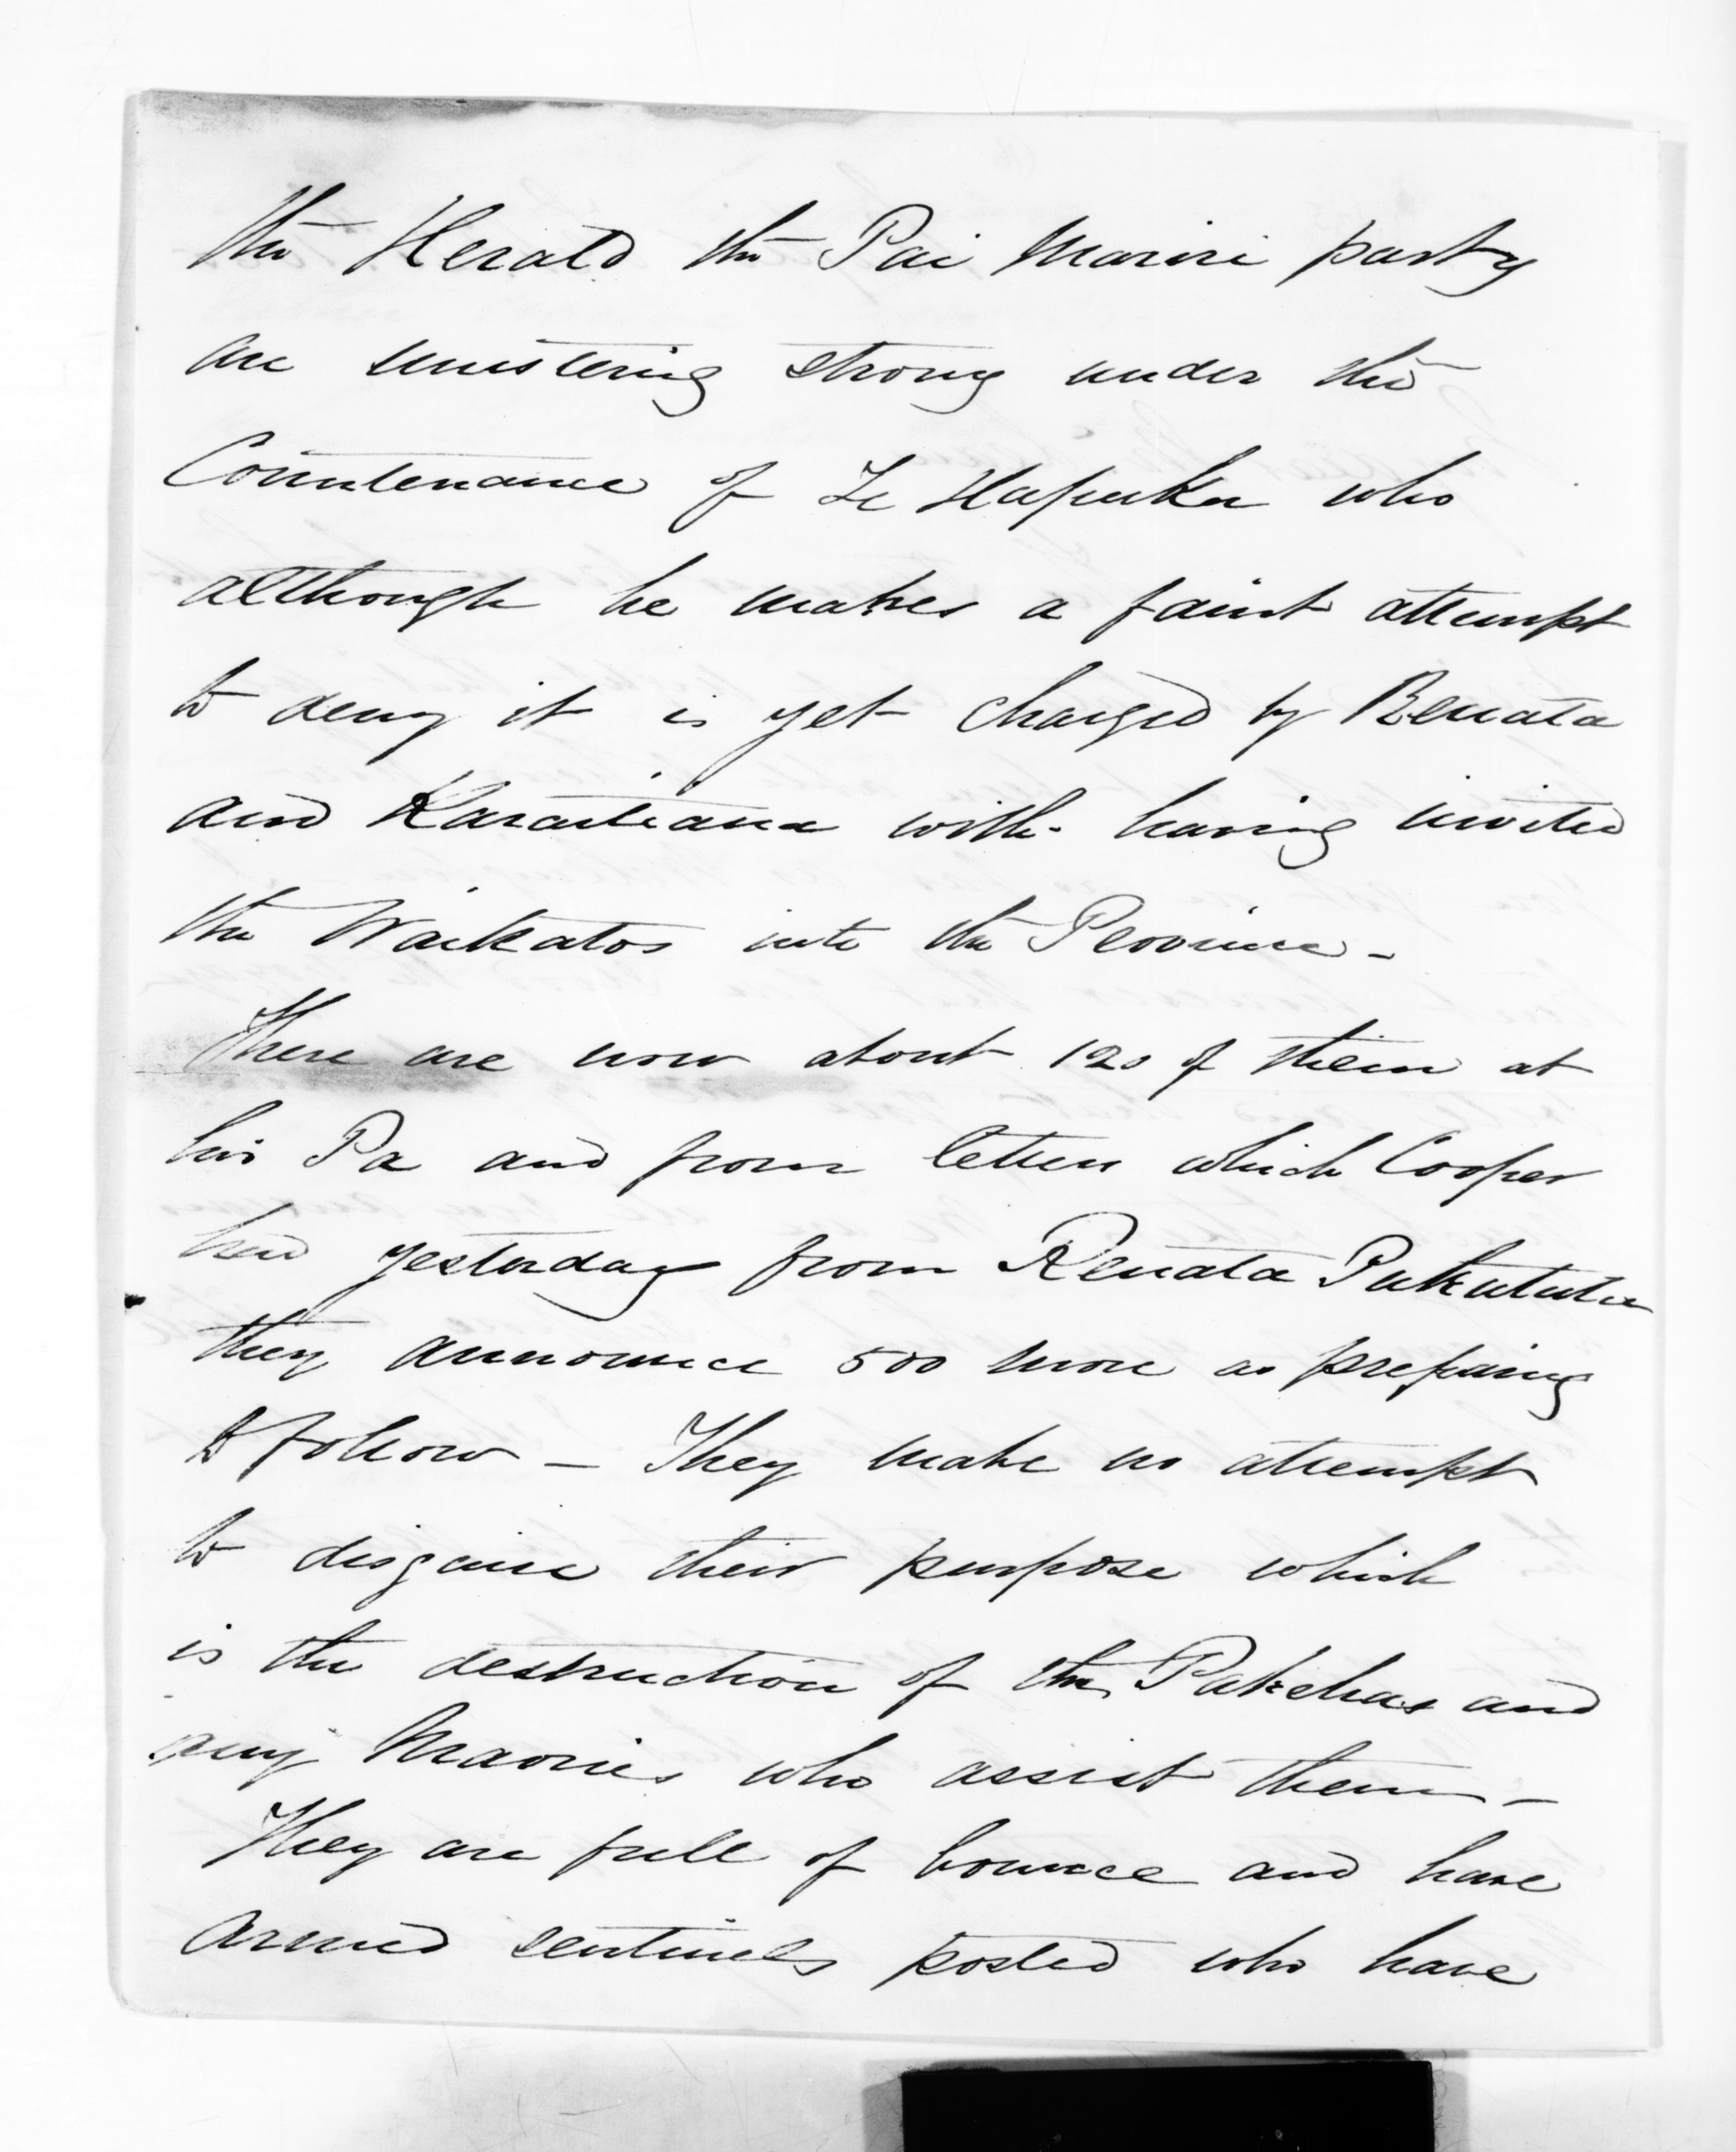 the Herald the Pai Marire party
are mustering strong under the
Countenance of Te Hapuka who
although he makes a faint attempt
to deny it is yet charged by Renata
and Karaitiana with having invited
the Waikatos into the Province -
There are now about 120 of them at
his Pa and from letters which Cooper
had yesterday from Renata Pukututu
they announce 500 more as preparing
to follow - They make no attempt
to disguise their purpose which
is the destruction of the Pakehas and
any Maories who assist them -
They are full of bounce and have
armed sentinels posted who have